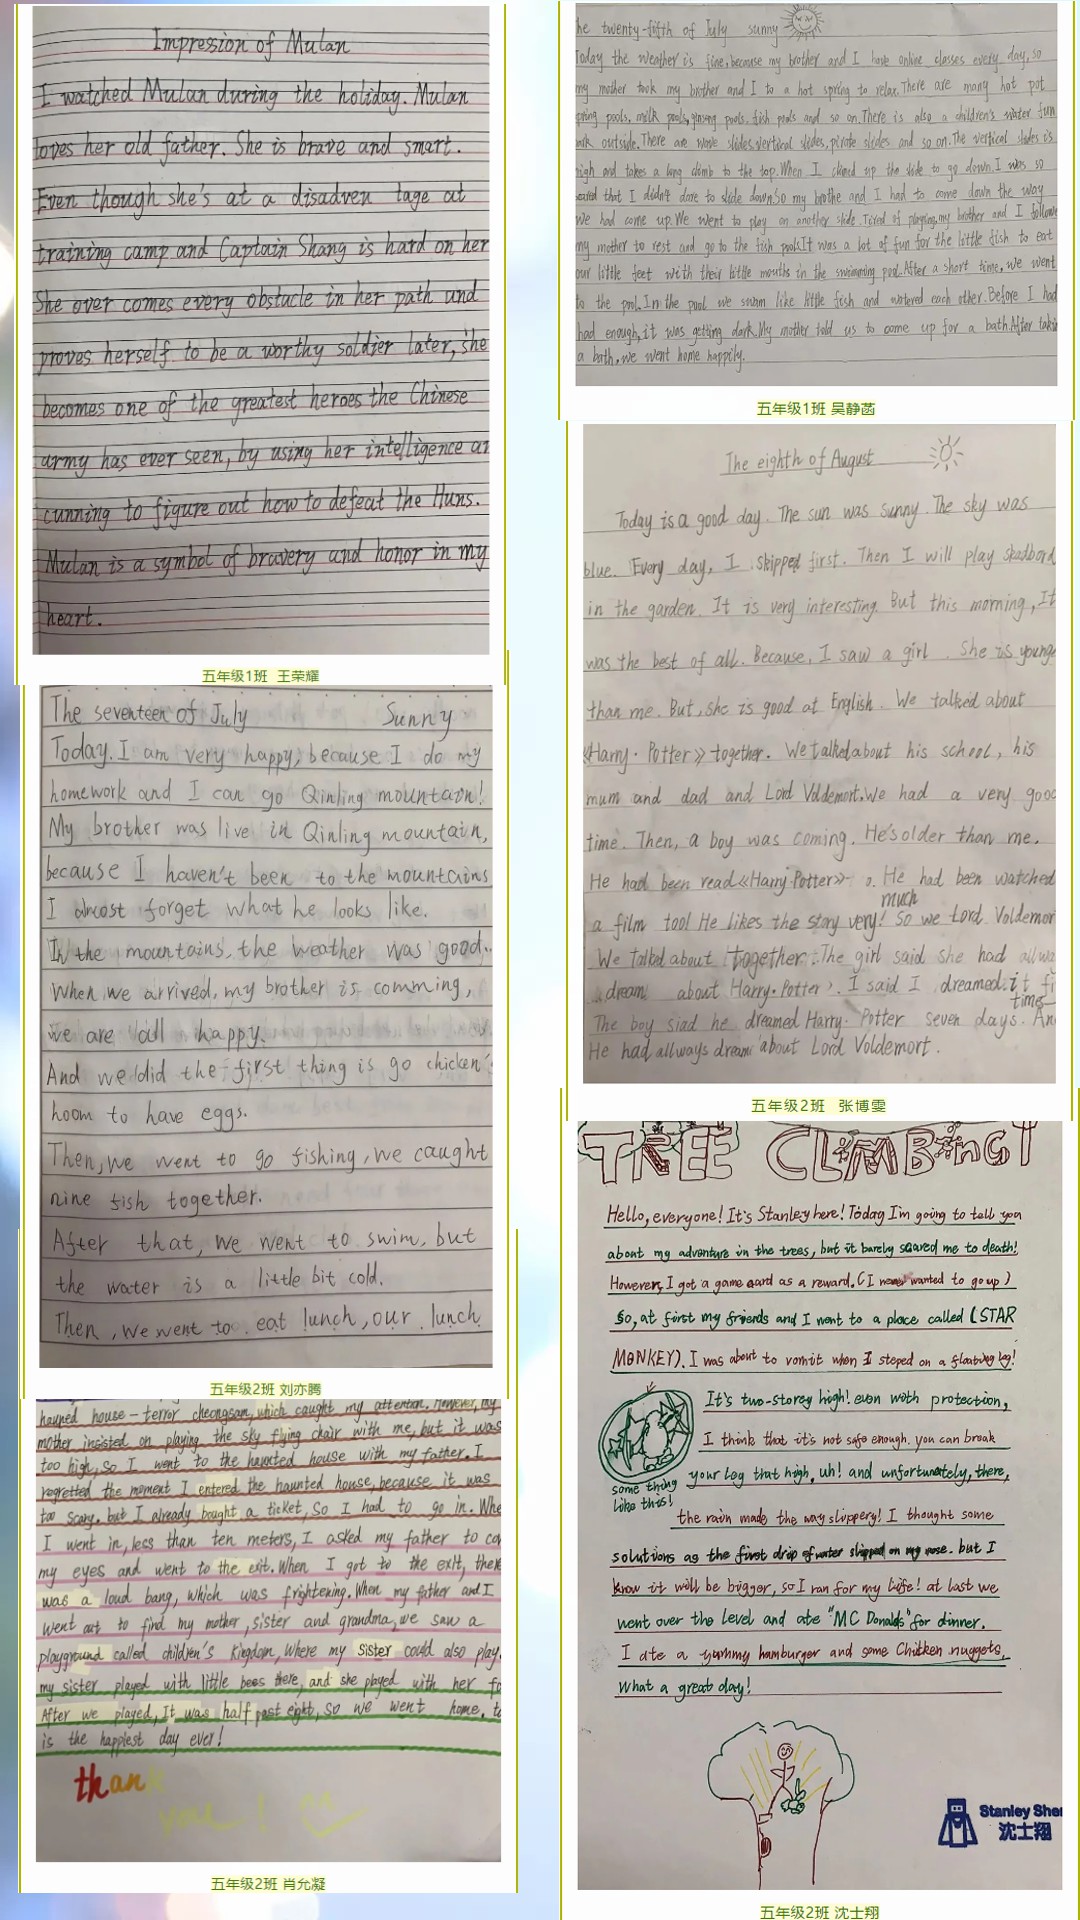 Impression of Mulan
I watched Mulan during the holiday. Mulan
loves her old father. She is brave and smart.
Even though she's at a disadven tage at
training camp and Captain Shang is hard on her
She over comes every obstacle in her path und
proves herself to be a worthy soldier later, she
becomes one of the greatest heroes the Chinese
army has ever seen, by using her intelligence
cunning to figure out how to defeat the Huns.
Mulan is a symbol of bravery and honor in my
heart.
五年级1班 王荣耀
The seventeen of July Sunny
Today. I am very happy, because I do my
homework and I can go Qinling mountain!
My brother was live in Qinling mountain,
because I haven't been to the mountains
I almost forget what he looks like.
In the mountains, the weather was good.
When we arrived, my brother is comming,
we are all happy.
And we did the first thing is go chicken
hoom to have eggs.
Then, we went to go fishing, we caught
nine fish together.
After that, we went to swim, but
the water is a little bit cold.
Then, we went to eat lunch, our lunch
五年级2班 刘亦腾
haunted house-terror cheongsam, which caught my attention. However, my
mother insisted on playing the sky flying chair with me, but it was
too high, so I went to the haunted house with my father. I
regretted the moment I entered the haunted house, because it was
too scary. but I already bought a ticket, So I had to go in. Whe
I went in, less than ten meters, I asked my father to co
my eyes and went to the exit. When I got to the exit, ther
was a loud bang, which was frightening. When my father and I
went out to find my mother, sister and grandma, we saw a
playground called children's Kingdom, Where my sister could also play.
my sister played with little bees there, and she played with her f
After we played, It was half past eight, So we went home, t
is the happiest day ever!
thank
you!
五年级2班 肖允凝
he twenty-fifth of July sunny
Today the weather is fine, because my brother and I have online classes every day, so
my mother took my brother and I to a hot spring to relax. There are many hot pot
pring pools, milk pools, ginseng pools, fish pools and so on. There is also a children's water fun
ark outside. There are wave slides, vertical slides, pirate slides and so on. The vertical slides is
high and takes a long climb to the top. When I climed up the slide to go down, I was so
cared that I didn't dare to slide down. So my brothe and I had to come down the way
we had come up. We went to play on another slide. Tired of playing, my brother and I followe
my mother to rest and go to the fish pools. It was a lot of fun for the little fish to eat
our little feet with their little mouths in the swimming pool. After a short time, we went
to the pool. In the pool we swam like little fish and watered each other. Before I had
had enough, it was getting dark. My mother told us to come up for a bath. After takin
a bath, we went home happily.
五年级1班 吴静菡
The eighth of August
Today is a good day. The sun was sunny. The sky was
blue. Every day, I skipped first. Then I will play skadbord
in the garden. It is very interesting. But this morning, It
was the best of all. Because, I saw a girl. She is younge
than me. But, she is good at English. We talked about
《Harry·Potter》 together. We talked about his school, his
mum and dad and Lord Voldemort. We had a very good
time. Then, a boy was coming. He's older than me.
He had been read《Harry·Potter》. He had been watched
a film too! He likes the story very much! So we Lord Voldemor
We talked about together. The girl said she had allwa
dream about Harry·Potter》. I said I dreamed it fi
times
The boy siad he dreamed Harry·Potter seven days. An
He had allways dream about Lord Voldemort.
五年级2班 张博雯
TREE CLIMBING!
Hello, everyone! It's Stanley here! Today I'm going to tell you
about my adventure in the trees, but it barely scared me to death!
However, I got a game card as a reward. (I wanted to go up)
So, at first my friends and I went to a place called (STAR
MONKEY). I was about to vomit when I steped on a floating log!
It's two-storey high! even with protection,
I think that it's not safe enough. you can break
your leg that high, uh! and unfortunately, there,
some thing
like this!
the rain made the way slippery! I thought some
solutions as the first drop of water slipped on my nose. but I
know it will be bigger, so I ran for my life! at last we
went over the level and ate "MC Donalds" for dinner.
I ate a yummy hamburger and some Chicken nuggets,
What a great day!
Stanley She
沈士翔
五年级2班 沈士翔